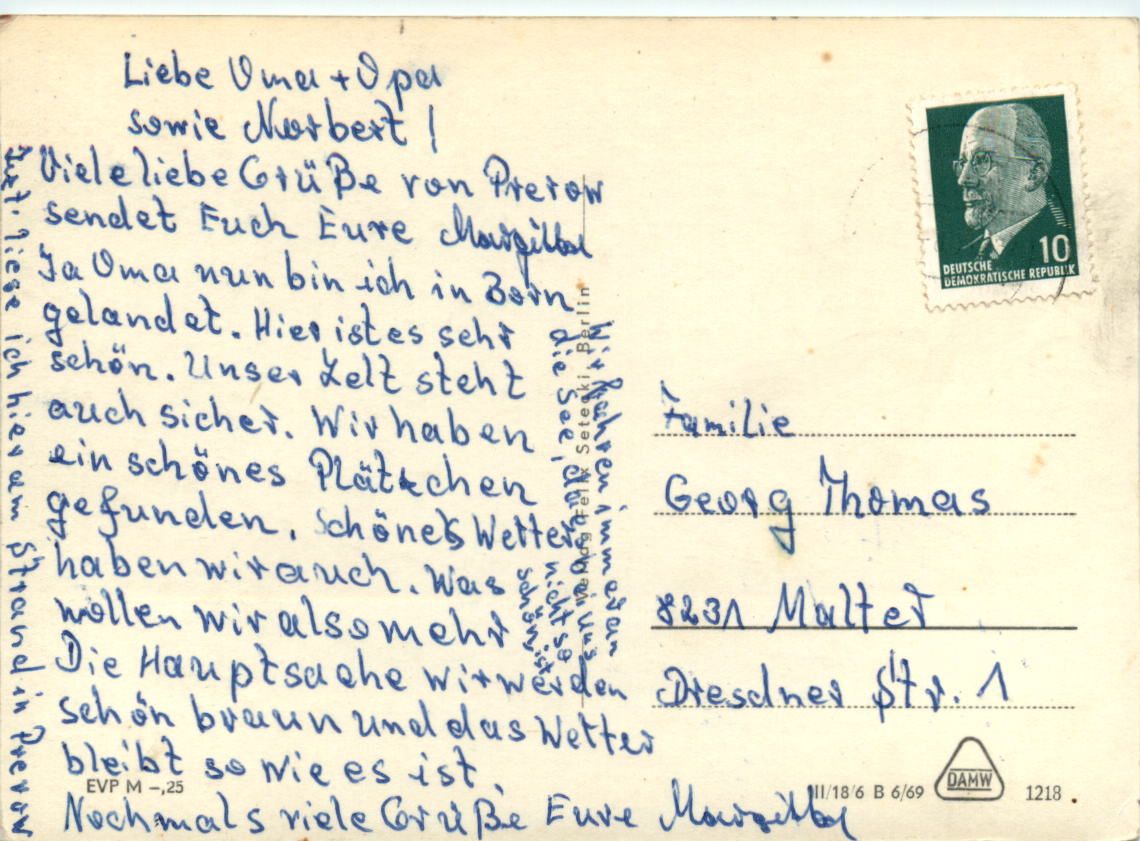 Liebe Oma + Opa
sowie Norbert!
Viele liebe Grüße von Prerow
sendet Euch Eure Margitta
Ja Oma nun bin ich in Born
gelandet. Hier ist es sehr
schön. Unser Zelt steht
auch sicher. Wir haben
ein schönes Plätzchen
gefunden. Schönes Wetter
haben wir auch. Was
wollen wir also mehr
Die Hauptsache wir werden
schön braun und das Wetter
bleibt so wie es ist.
Nochmals viele Grüße Eure Margitta
Wir fahren immer an
die See, da es bei uns
nicht so
schön ist
liege ich hier am Strand in Prerow
Verlag Felix Setecki, Berlin
DEUTSCHE
DEMOKRATISCHE REPUBLIK
10
Familie
Georg Thomas
8231 Malter
Dresdner Str. 1
EVP M -,25
III/18/6 B 6/69
DAMW
1218